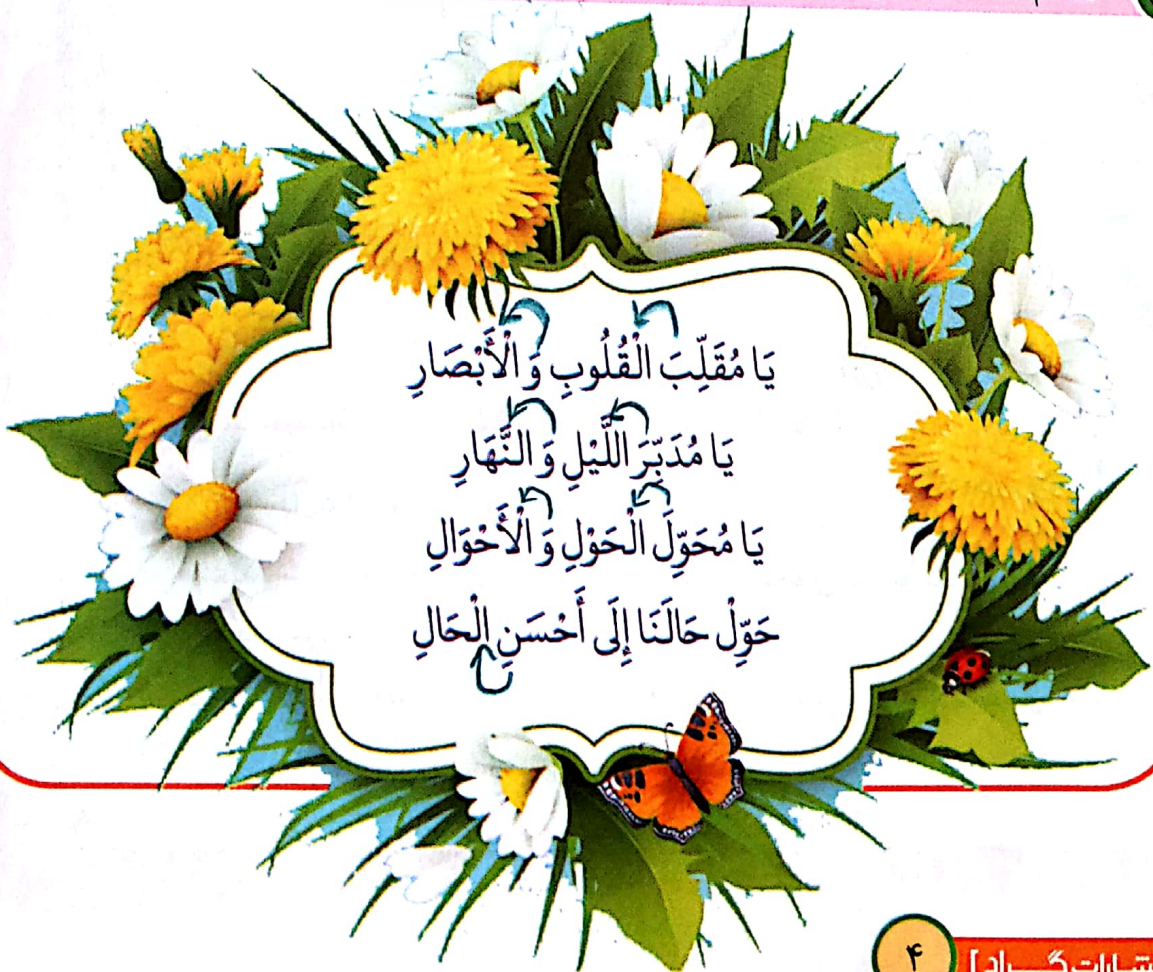 يَا مُقَلِّبَ الْقُلُوبِ وَ الْأَبْصَارِ
يَا مُدَبِّرَ اللَّيْلِ وَ النَّهَارِ
يَا مُحَوِّلَ الْحَوْلِ وَ الْأَحْوَالِ
حَوِّلْ حَالَنَا إِلَى أَحْسَنِ الْحَالِ
۴